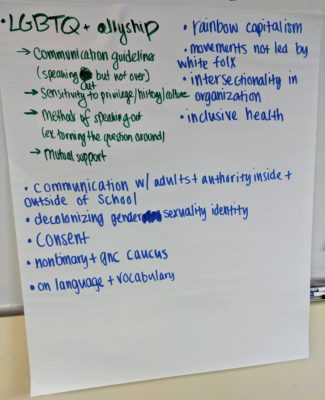 • LGBTQ + allyship
→ Communication guidelines
(speaking out but not over)
→ Sensitivity to privilege/history/culture
→ Methods of speaking-out
(ex. torning the question around)
→ mutual support
• rainbow capitalism
• movements not led by
white folx
• intersectionality in
organization
• inclusive health
• communication w/ adults + authority inside +
outside of School
• decolonizing gender sexuality identity
• consent
• nonbinary + gnc caucus
• on language + vocabulary